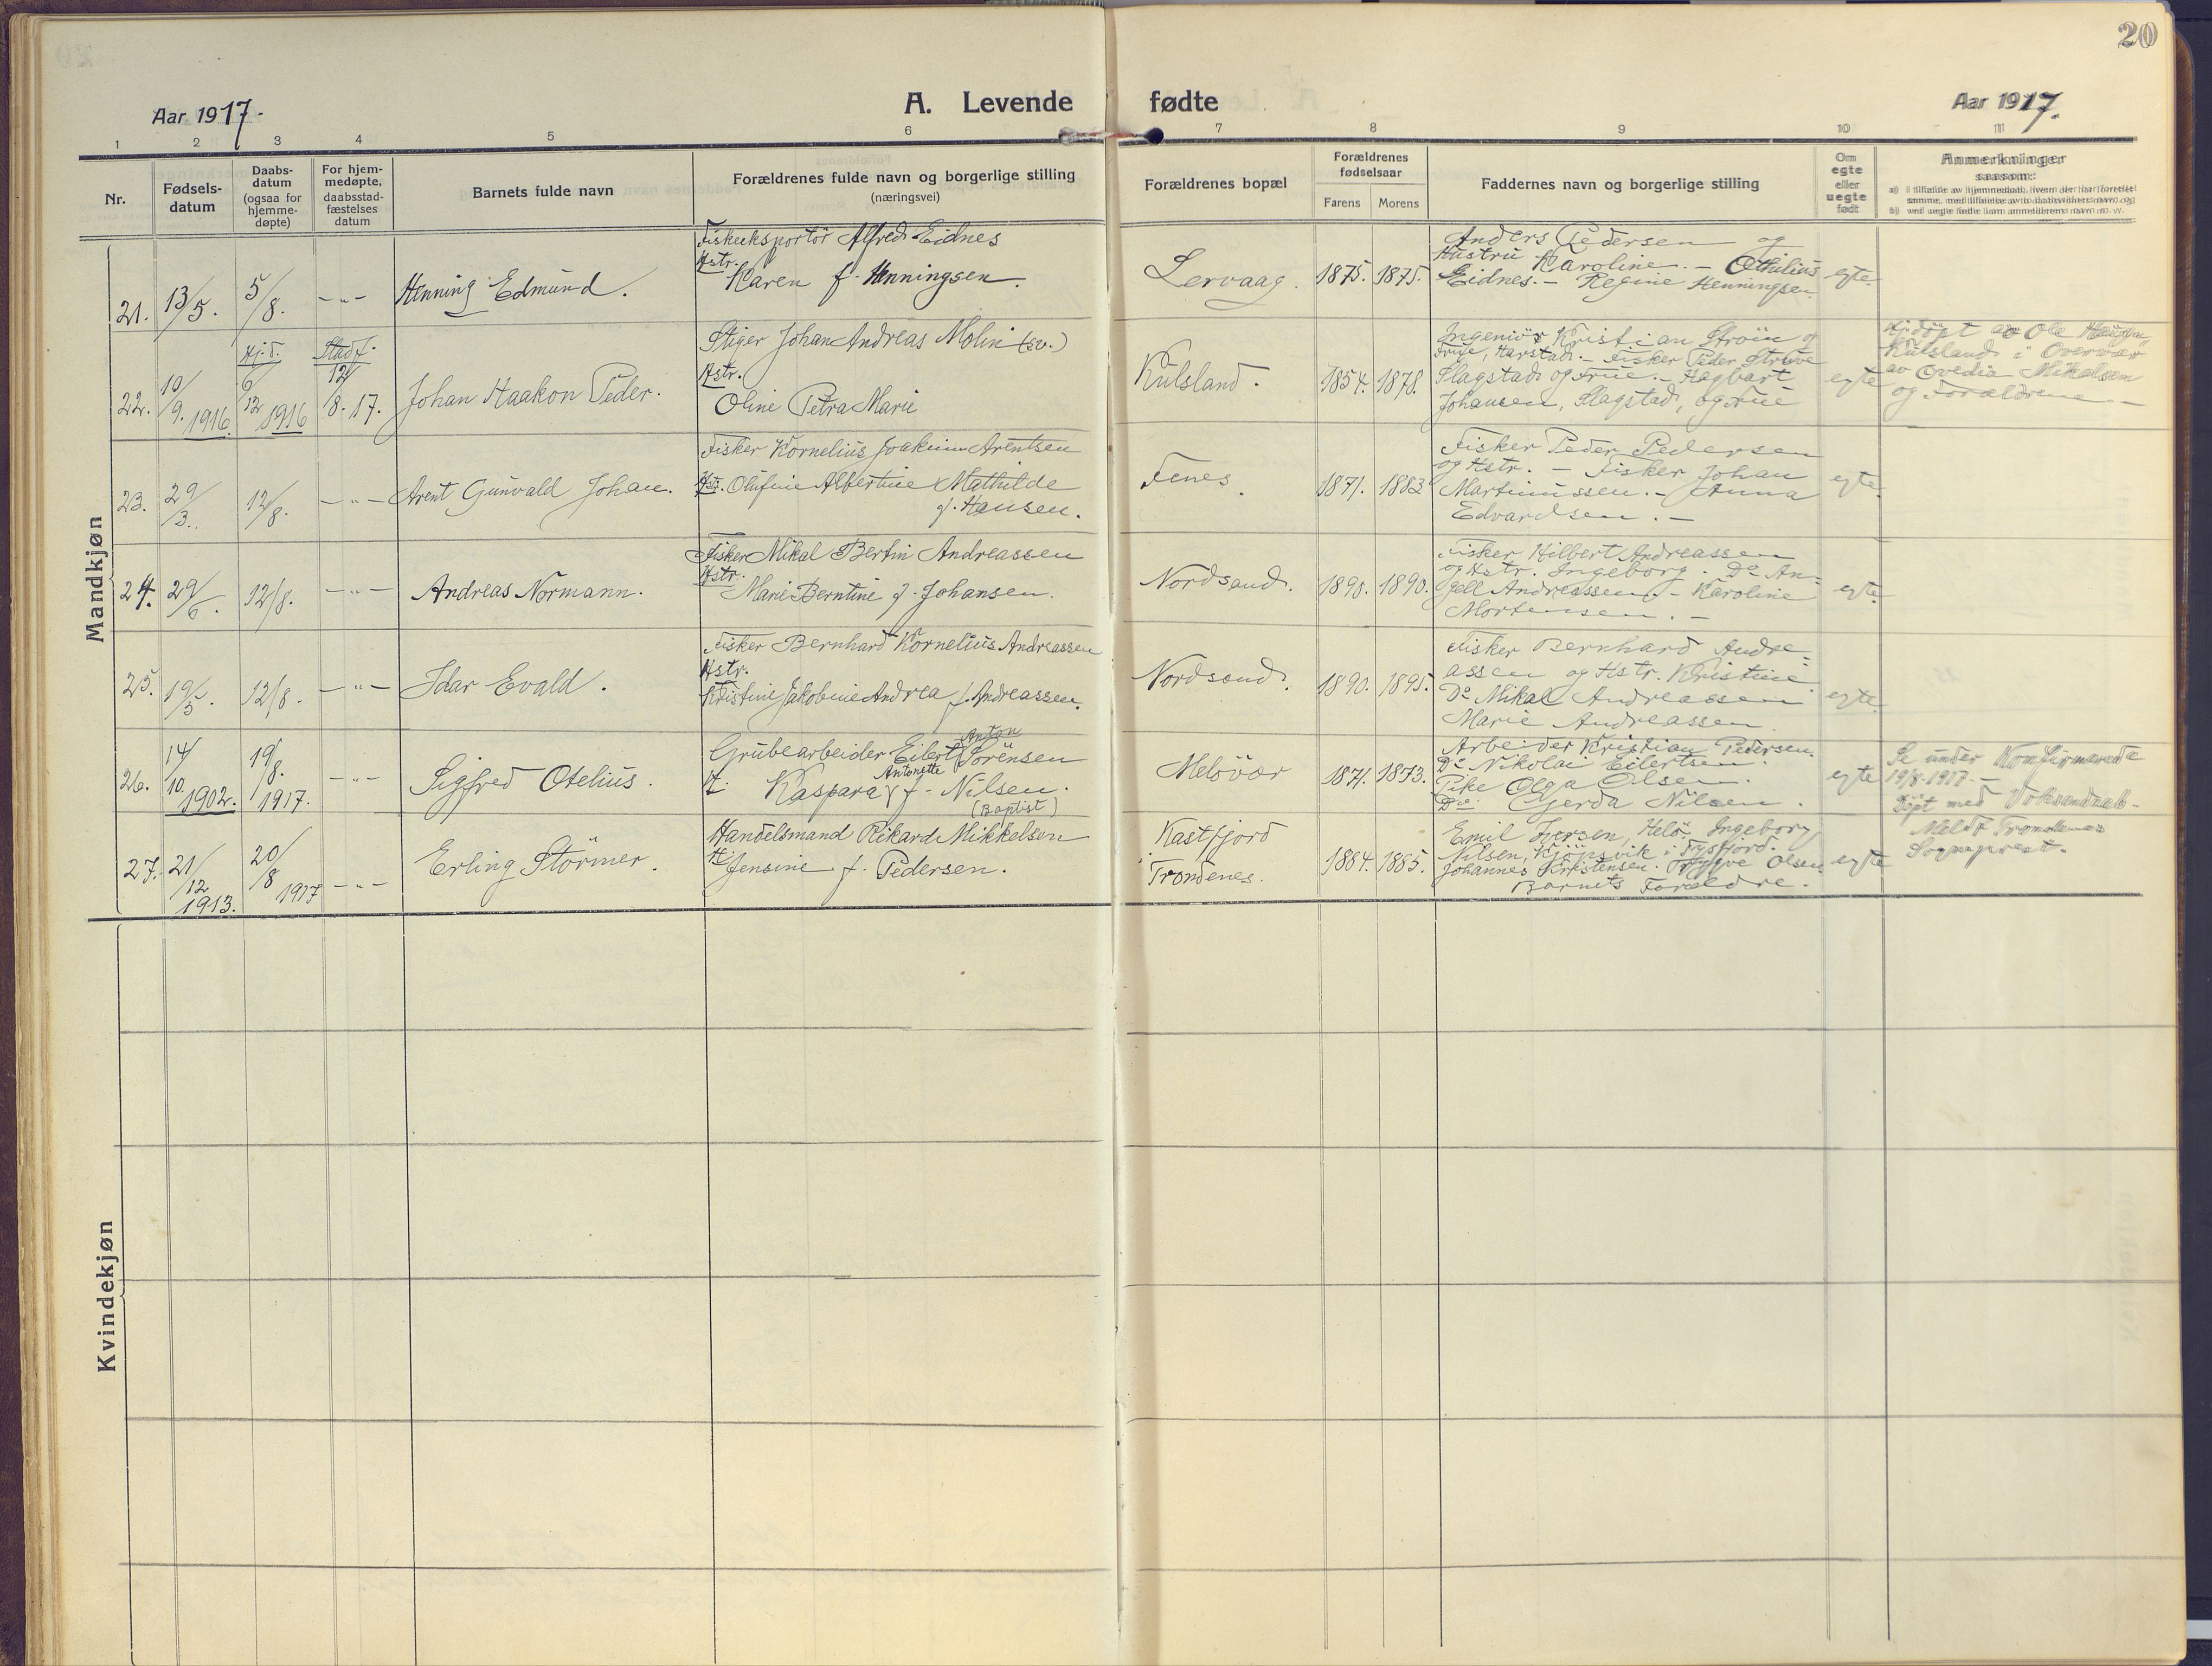 20
Aar 1917.
A. Levende fødte
Aar 1917.
1 2 3 4 5 6 7 8 9 10 11
Nr.
Fødsels-
datum
Daabs-
datum
(ogsaa for
hjemme-
døpte)
For hjem-
medøpte,
daabsstad-
fæstelses
datum
Barnets fulde navn
Forældrenes fulde navn og borgerlige stilling
(næringsvei)
Forældrenes bopæl
Forældrenes
fødselsaar
Farens Morens
Faddernes navn og borgerlige stilling
Om
egte
eller
uegte
født
Anmerkninger
saasom:
Mandkjøn
21. 13/5. 5/8. -"- Henning Edmund.
Fiskeeksportör Alfred Eidnes
Hstr.
Karen f. Henningsen.
Lervaag. 1875. 1875.
Anders Pedersen og
Hustru Karoline. - Othilius
Eidnes. - Regine Henningsen
egte.
22. 10/9. 1916. Hj.d. 6/12 1916 Stadf. 12/8. 17. Johan Haakon Peder.
Stiger Johan Andreas Molin (sv.)
Hstr.
Oline Petra Marie
Kulsland. 1854. 1878.
Ingeniör Kristian Ström og
Frue, Harstad. - Fisker Peder Struve
Slagstad og Frue. - Hagbart
Johansen, Slagstad, og Frue
egte
Hj.döpt av Ole Haugen,
Kulsland i Overvær
av Ovedia Mikalsen
og Forældrene. -
23. 29/3. 12/8. -"- Arent Gunvald Johan.
Fisker Kornelius Joakim Arentsen
Hstr. Olufine Albertine Mathilde
f. Hansen.
Fenes. 1871. 1883
Fisker Peder Pedersen
og Hstr. - Fisker Johan
Martinussen. - Anna
Edvardsen. -
egte.
24. 29/6. 12/8. -"- Andreas Normann.
Fisker Mikal Bertin Andreassen
Hstr.
Marie Berntine f. Johansen.
Nordsand. 1890. 1890.
Fisker Hilbert Andreassen
og Hstr. Ingeborg. Do An-
gell Andreassen. - Karoline
Mortensen. -
egte.
25. 19/5. 12/8. -"- Idar Evald.
Fisker Bernhard Kornelius Andreassen
Hstr.
Kristine Jakobine Andrea f. Andreassen.
Nordsand. 1890. 1895.
Fisker Bernhard Andre-
assen og Hstr. Kristine.
Do Mikal Andreassen
Marie Andreassen
egte.
26. 14/10. 1902. 19/8. 1917. -"- Sigfred Otelius.
Anton
Grubearbeider Eilert Sörensen
Antonette
H: Kaspara f. Nilsen.
(Baptist)
Melövær 1871. 1873.
Arbeider Kristian Pedersen.
Do Nikolai Eilertsen.
Pike Olga Olsen.
Do Gerda Nilsen.
egte
Se under Konfirmerede
19/8. 1917. -
Döpt med Voksendaab -
27. 21/12 1913. 20/8 1917 -"- Erling Störmer.
Handelsmand Rikard Mikkelsen
H: Jensine f. Pedersen.
Kastfjord
Trondenes. 1884. 1885.
Emil Iversen, Helö, Ingeborg
Nilsen, Kjöpsvik i Tysfjord.
Johannes Kristensen. Tryggve Olsen.
Barnets Forældre.
egte
Meldt Trondenes
Sogneprest.
Kvindekjøn